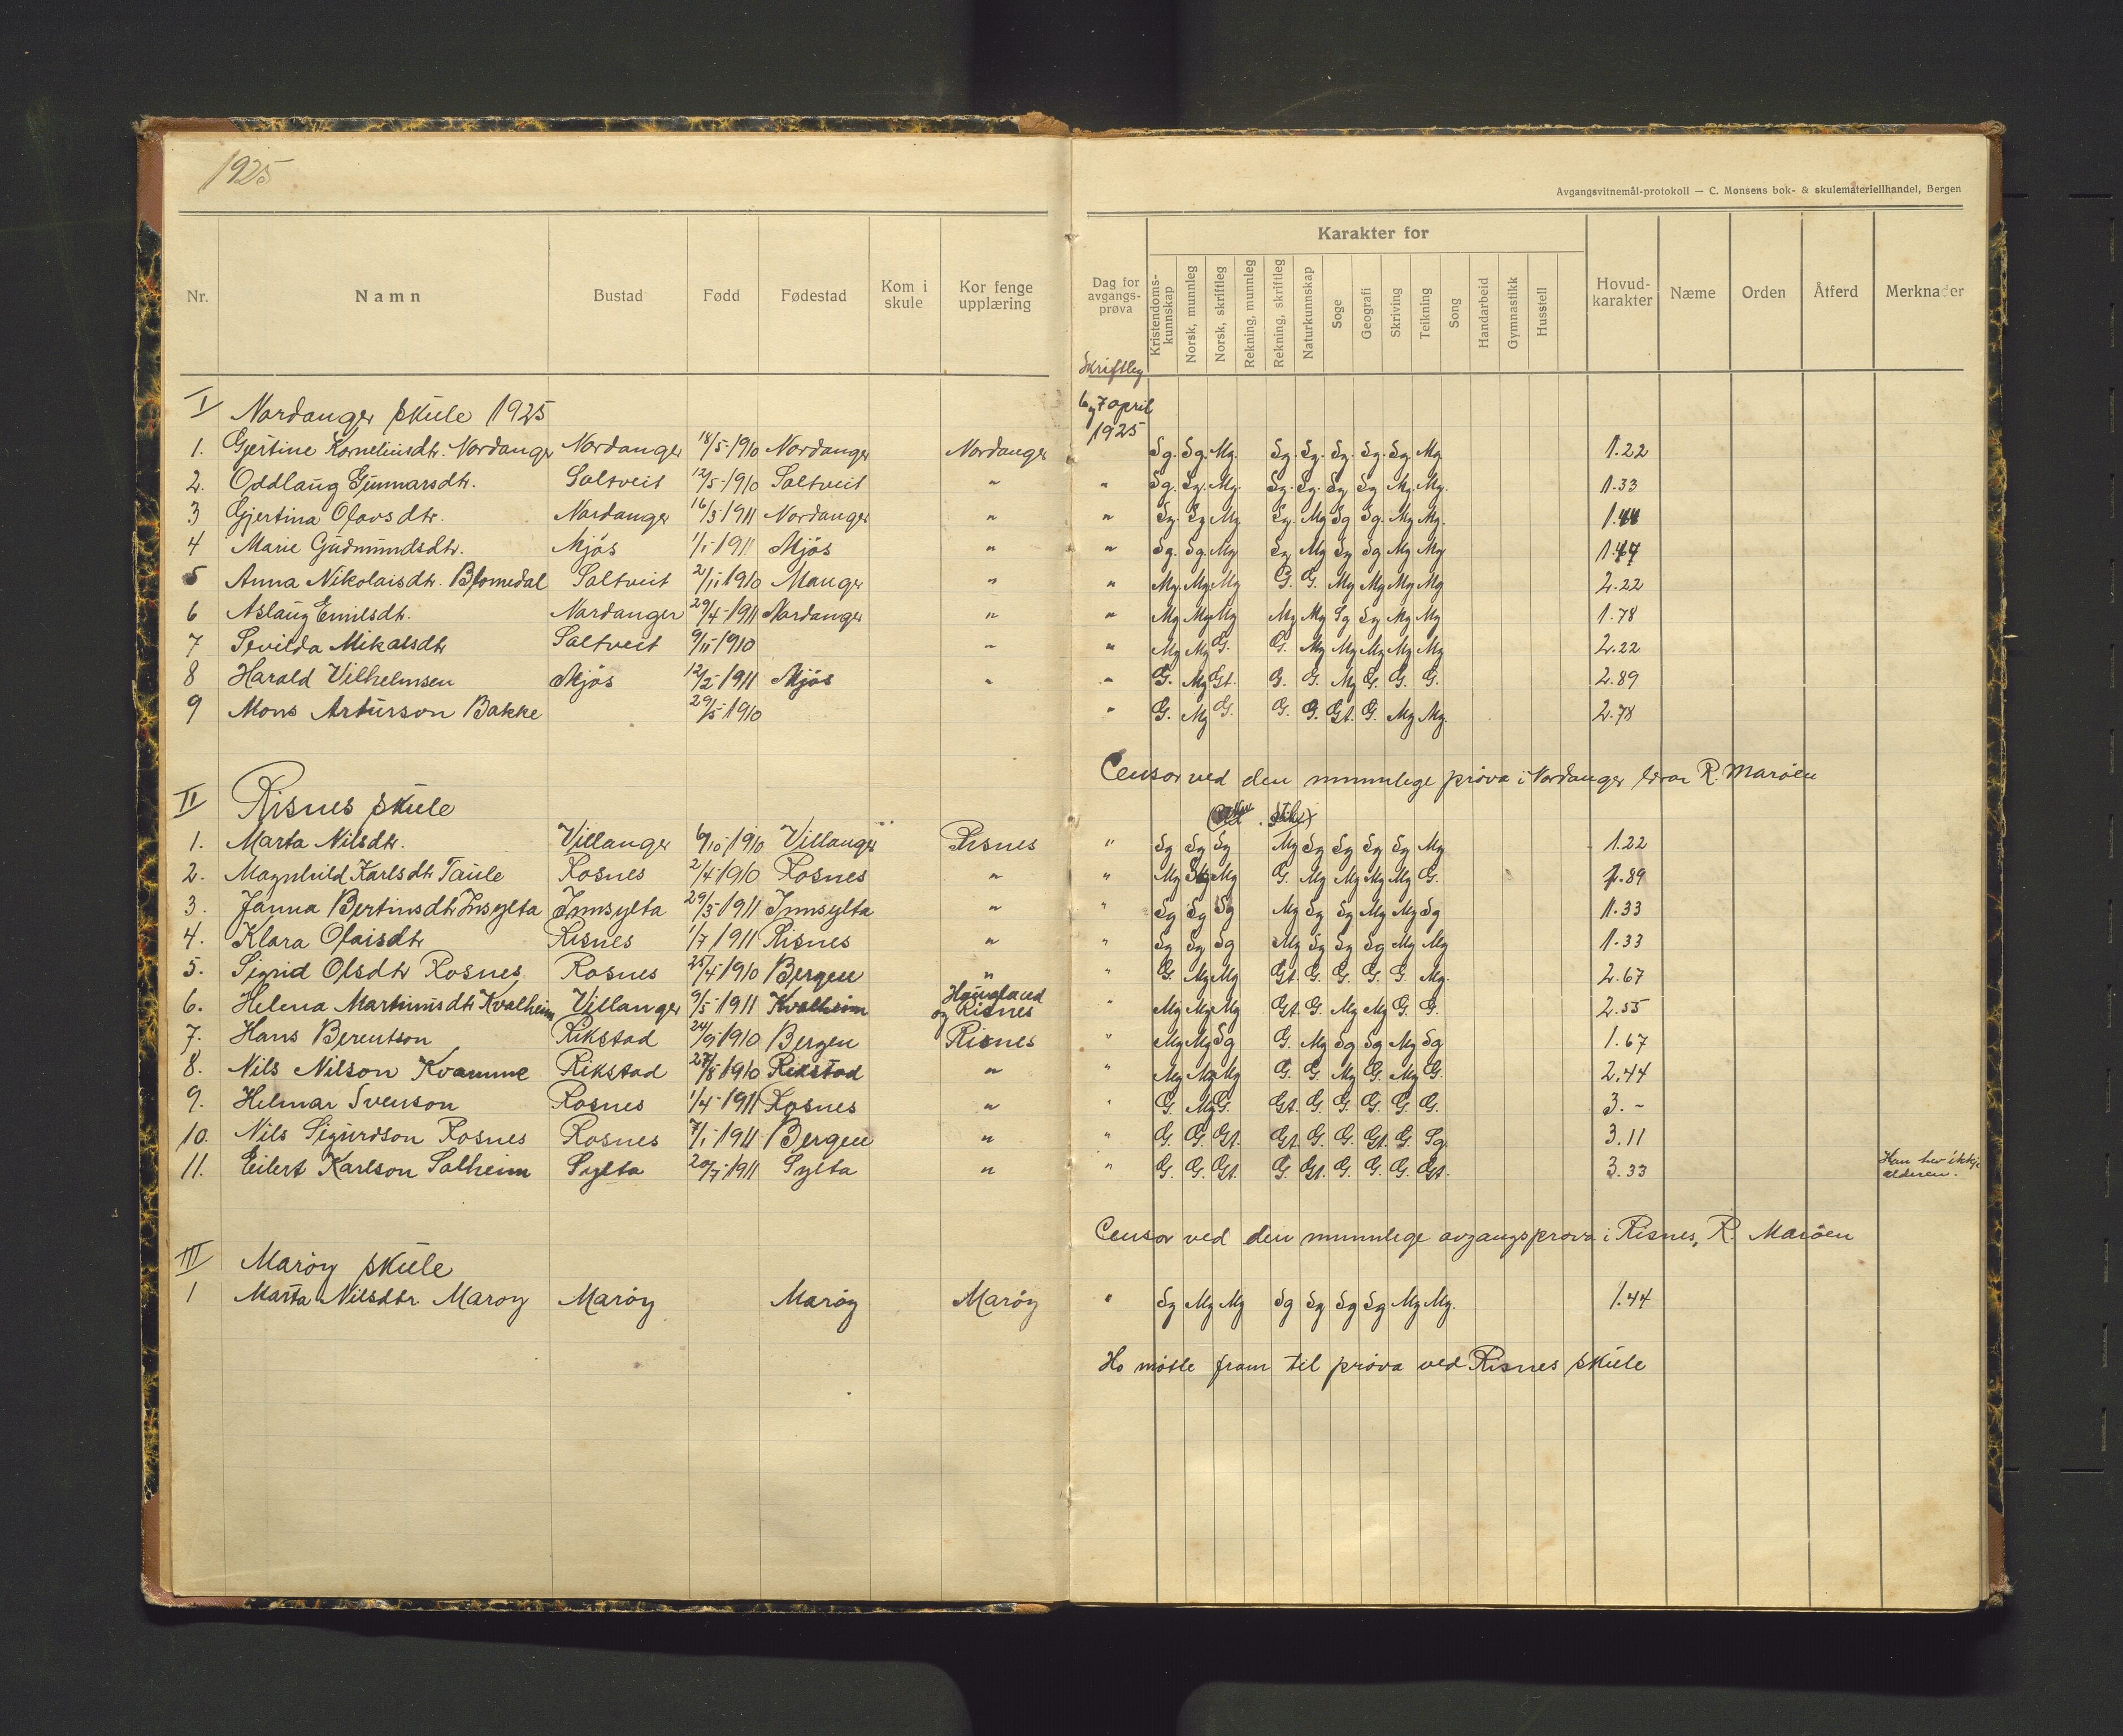 1925
Avgangsvitnemål-protokoll — C. Monsens bok- & skulemateriellhandel, Bergen
Nr. Namn Bustad Fødd Fødestad Kom i skule Kor fenge upplæring Dag for avgangs-prøva Karakter for Hovud-karakter Næme Orden Åtferd Merknader
Kristendoms-kunnskap Norsk, munnleg Norsk, skriftleg Rekning, munnleg Rekning, skriftleg Naturkunnskap Soge Geografi Skriving Teikning Song Handarbeid Gymnastikk Husstell
Skriftleg
I Nordanger skule 1925 6 og 7 april 1925
1. Gjertine Korneliusdtr. Nordanger Nordanger 18/5-1910 Nordanger Nordanger Sg. Sg. Mg. Sg. Sg. Sg. Sg. Sg. Mg 1.22
2. Oddlaug Gunnarsdtr. Saltveit 12/5-1910 Saltveit " " Sg. Sg. Mg. Sg. Sg. Sg Sg Mg. Mg. 1.33
3 Gjertina Olavsdtr. Nordanger 16/3 1911 Nordanger " " Sg. Sg Mg Sg Mg Sg Sg. Mg Mg. 1.44
4 Marie Gudmundsdtr. Mjøs 1/1-1911 Mjøs " " Sg. Sg. Mg Sg Mg Sg Sg Mg Mg
5 Anna Nikolaisdtr. Blomedal Saltveit 2/11 1910 Manger " " Mg. Mg. Mg G. G. Mg Mg Mg Mg 2.22
6 Aslaug Emilsdtr. Nordanger 29/4-1911 Nordanger " " Mg Mg Mg Mg Mg Sg Sg Mg Mg 1.78
7 Sevilda Mikalsdtr Saltveit 9/11-1910 " " Mg Mg G. G. Mg Mg Mg Mg Mg 2.22
8 Harald Vilhelmsen Mjøs 12/2-1911 Mjøs " " G. Mg Gt. G. G. Mg G. G. G. 2.89
9 Mons Arturson Bakke 29/5-1910 " G. Mg G. G. G. Gt. G. Mg Mg. 2.78
Censor ved den munnlege prøva i Nordanger lærar R. Marøen
II Risnes skule
1. Marta Nilsdtr. Villanger 6/10-1910 Villanger Risnes " Sg Sg Sg Mg Sg Sg Sg Sg Mg 1.22
2. Magnhild Karlsdtr Taule Rosnes 2/4-1910 Rosnes " " Mg Mg G. Mg Mg Mg Mg G. 1.89
3. Janna Bertinsdtr Insylta Innsylta 29/3 1911 Innsylta " " Sg Sg Sg Mg Sg Sg Mg Mg Sg 1.33
4. Klara Olaisdtr Risnes 1/7 1911 Risnes " " Sg Sg Sg Mg Sg Sg Sg Mg Mg 1.33
5. Sigrid Olsdtr Rosnes Rosnes 25/4 1910 Bergen " " G. Mg Mg Gt. G. G. G. G. Mg. 2.67
6. Helena Martinusdtr Kvalheim Villanger 9/5-1911 Kvalheim Haugland og Risnes " Mg Mg Mg Gt. G. Mg Mg G. G. 2.55
7. Hans Berentson Rikstad 24/9 1910 Bergen Risnes " Mg Mg Sg G. Mg Sg Sg Mg Sg 1.67
8. Nils Nilson Kvamme Rikstad 27/8 1910 Rikstad " " Mg Mg Mg G. G. Mg G. Mg G. 2.44
9. Helmar Svenson Rosnes 1/4-1911 Rosnes " " G. Mg G. Gt. G. G. G. G. G. 3.-
10. Nils Sigurdson Rosnes Rosnes 7/1-1911 Bergen " " G. G. Gt. Gt. G. G. Gt. G. Sg. 3.11
11. Eilert Karlson Solheim Sylta 20/7-1911 Sylta " " G. G. Gt. G. Gt. G. G. G. Gt. 3.33 Han hev ikkje alderen.
Censor ved den munnlege avgangsprøva i Risnes, R. Marøen
III Marøy skule
1 Marta Nilsdtr. Marøy Marøy Marøy Marøy " Sg Mg Mg Sg Sg Sg Sg Mg Mg. 1.44
Ho møtte fram til prøva ved Risnes skule